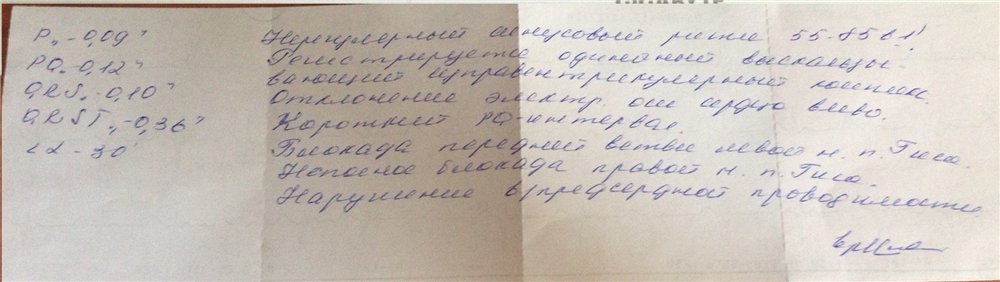 P„ - 0,09"
PQ„ - 0,12"
QRS„ - 0,10"
QRST„ - 0,36"
∠α - 30°
Нерегулярный синусовый ритм 55-85 в 1'
Регистрируется одиночный выскальзы-
вающий суправентрикулярный комплекс.
Отклонение электр. оси сердца влево.
Короткий PQ-интервал.
Блокада передней ветви левой н. п. Гиса.
Неполная блокада правой н. п. Гиса.
Нарушение в/предсердной проводимости